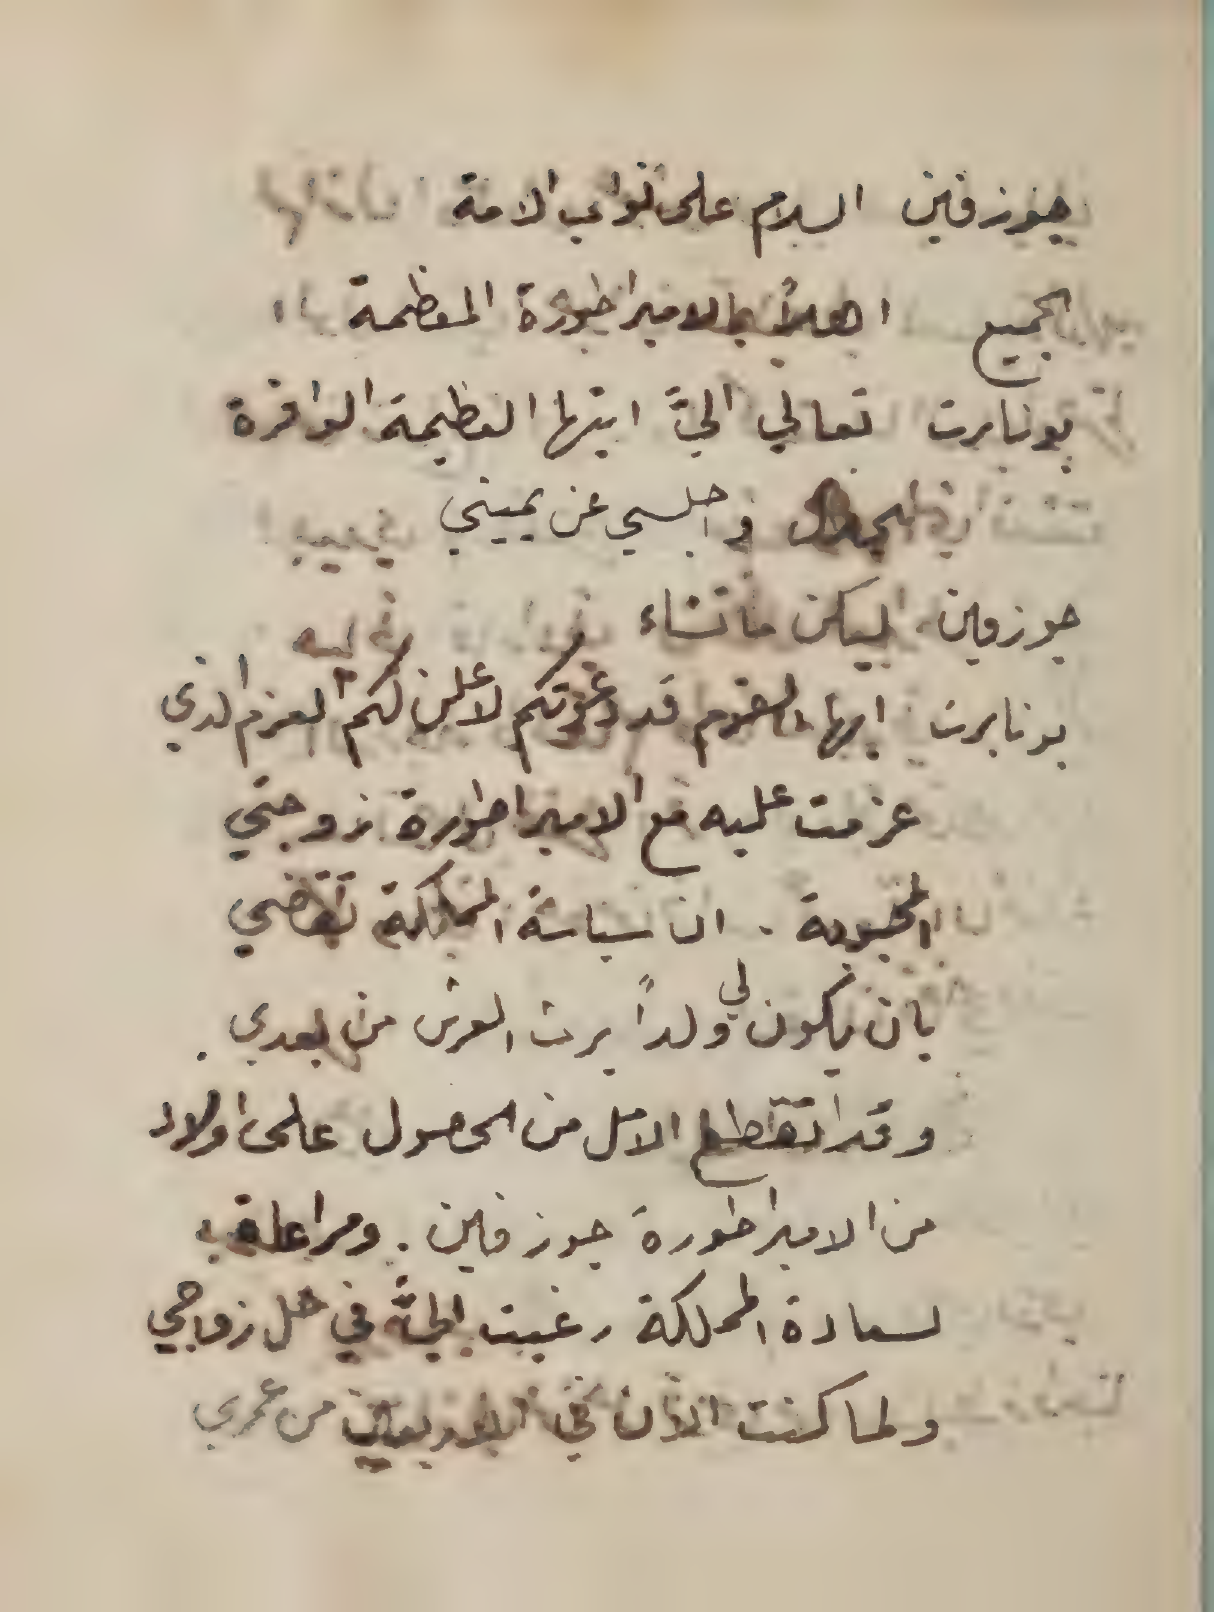 جوزفين السلام على نواب الامة
الجميع اهلاً بالامبراطورة المعظمة
بونابرت تعالي اليَّ ايتها العظيمة الوافرة
الجلال واجلسي عن يميني
جوزفين ليكن ما تشاء
بونابرت ايها القوم قد دعوتكم لاعلن لكم العزم الذي
عزمت عليه مع الامبراطورة زوجتي
المحبوبة . ان سياسة المملكة تقتضي
بان يكون لي ولداً يرث العرش من بعدي .
وقد انقطع الامل من الحصول على اولاد
من الامبراطورة جوزفين . ومراعاة
لسعادة المملكة رغبت اليَّ في حل زواجي
ولما كنت الان في الاربعين من عمري